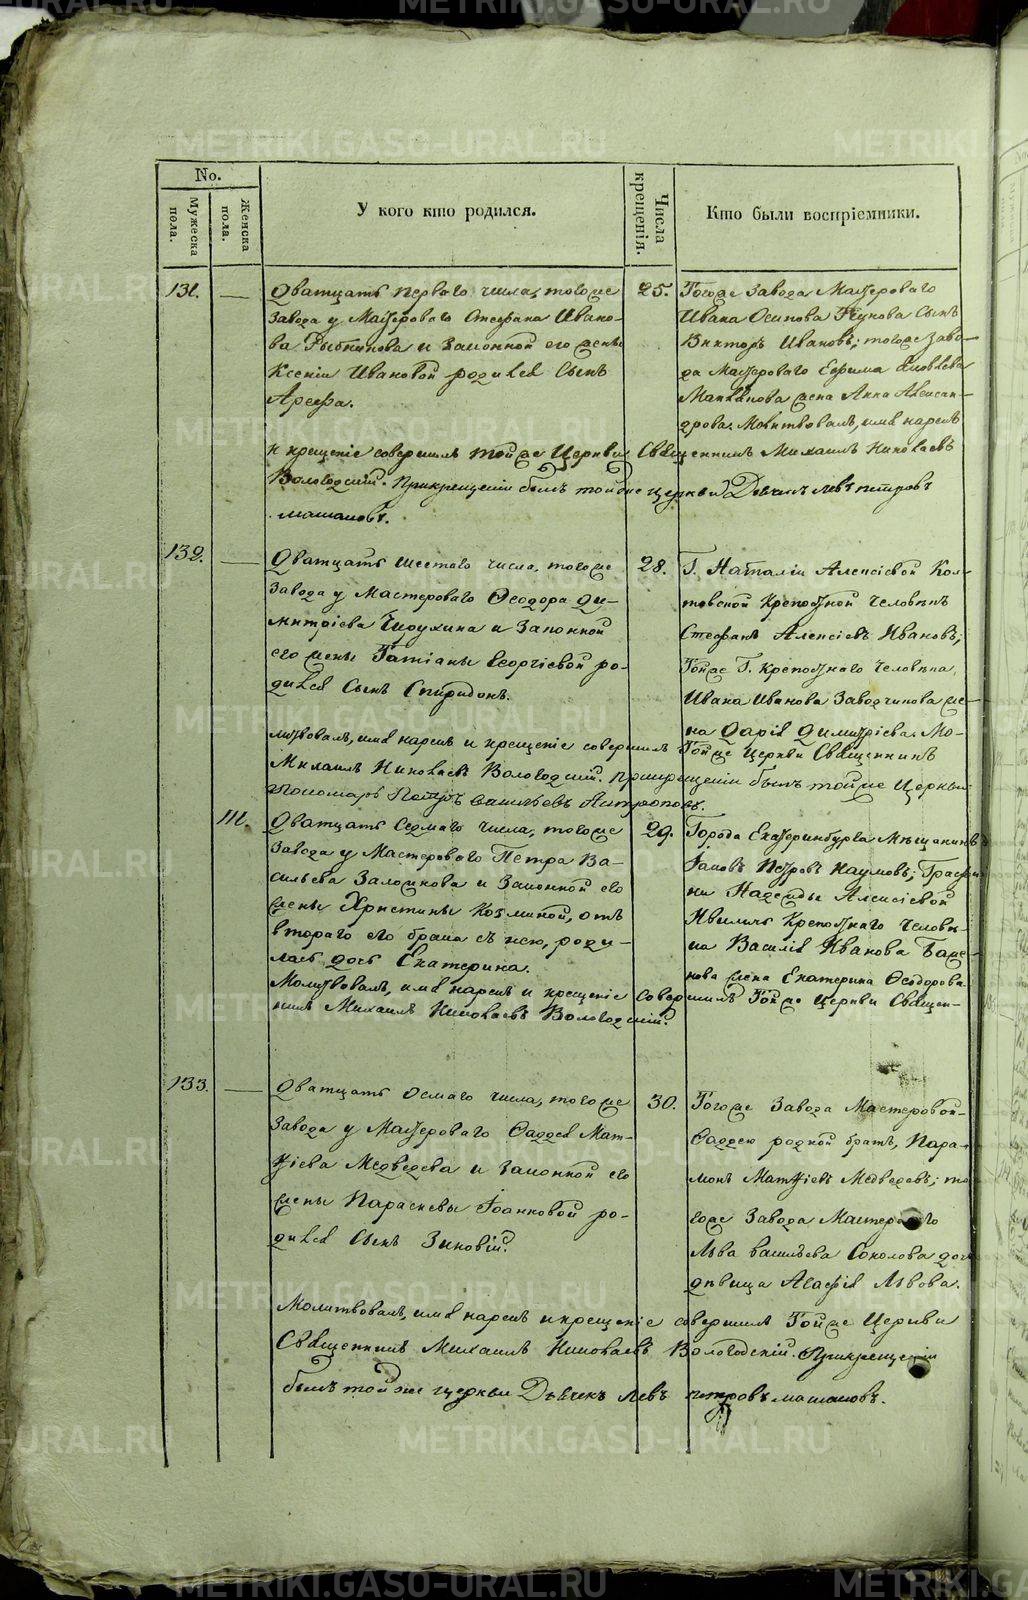 No.
Мужеска пола.
Женска пола.
У кого кто родился.
Числа крещенія.
Кто были воспріемники.
131. —
Дватцать перваго числа, тогоже
завода у Мастероваго Стефана Ивано-
ва Рыбникова и законной его жены
Ксеніи Ивановой родился сынъ
Арефа.
25.
Тогоже завода Мастероваго
Ивана Осипова сынъ
Викторъ Ивановъ; тогоже заво-
да Мастероваго Ефима Яковлева
жена Анна Алексан-
дрова. Молитвовалъ, имя нарекъ
и крещеніе совершилъ тойже Церкви Священникъ Михаилъ Николаевъ
Вологодскій. При крещеніи былъ тойже церкви Дьячекъ Левъ петровъ
машановъ.
132. —
Дватцать шестаго числа, тогоже
завода у Мастероваго Ѳеодора Ди-
митріева Чирухина и законной
его жены Татіаны Георгіевой ро-
дился сынъ Спиридонъ.
28.
Г. Наталіи Алексіевой Кол-
товской крепостной человѣкъ
Стефанъ Алексіевъ Ивановъ;
Тойже Г. крепостнаго человѣка,
Ивана Иванова Заводчикова же-
на Дарія Димитріева. Мо-
литвовалъ, имя нарекъ и крещеніе совершилъ Тойже Церкви Священникъ
Михаилъ Николаевъ Вологодскій. При крещеніи былъ тойже Церкви
пономарь Петръ васильевъ Антроповъ.
111.
Дватцать седмаго числа, тогоже
завода у Мастероваго Петра Ва-
сильева Заложнова и законной его
жены Христины Козминой, отъ
втораго его брака съ нею, роди-
лась дочь Екатерина.
29.
Города Екатеринбурга Мѣщанинъ
Іаковъ Петровъ Наумовъ; Графи-
ни Надежды Алексіевой
Ивеличъ крепостнаго человѣ-
ка Василія Иванова Баже-
нова жена Екатерина Ѳеодорова.
Молитвовалъ, имя нарекъ и крещеніе совершилъ Тойже Церкви Священ-
никъ Михаилъ Николаевъ Вологодскій.
133. —
Дватцать осмаго числа, тогоже
завода у Мастероваго Фаддея Мат-
ѳіева Медведева и законной его
жены Параскевы Іоанновой ро-
дился сынъ Зиновій.
30.
Тогоже завода Мастеровой
Фаддею родной братъ, Пара-
монъ Матѳіевъ Медведевъ; то-
гоже завода Мастероваго
Льва васильева Соколова дочь
дѣвица Агафія Львова.
Молитвовалъ, имя нарекъ и крещеніе совершилъ Тойже Церкви
Священникъ Михаилъ Николаевъ Вологодскій. При крещеніи
былъ тойже церкви Дьячекъ Левъ петровъ машановъ.
METRIKI.GASO-URAL.RU